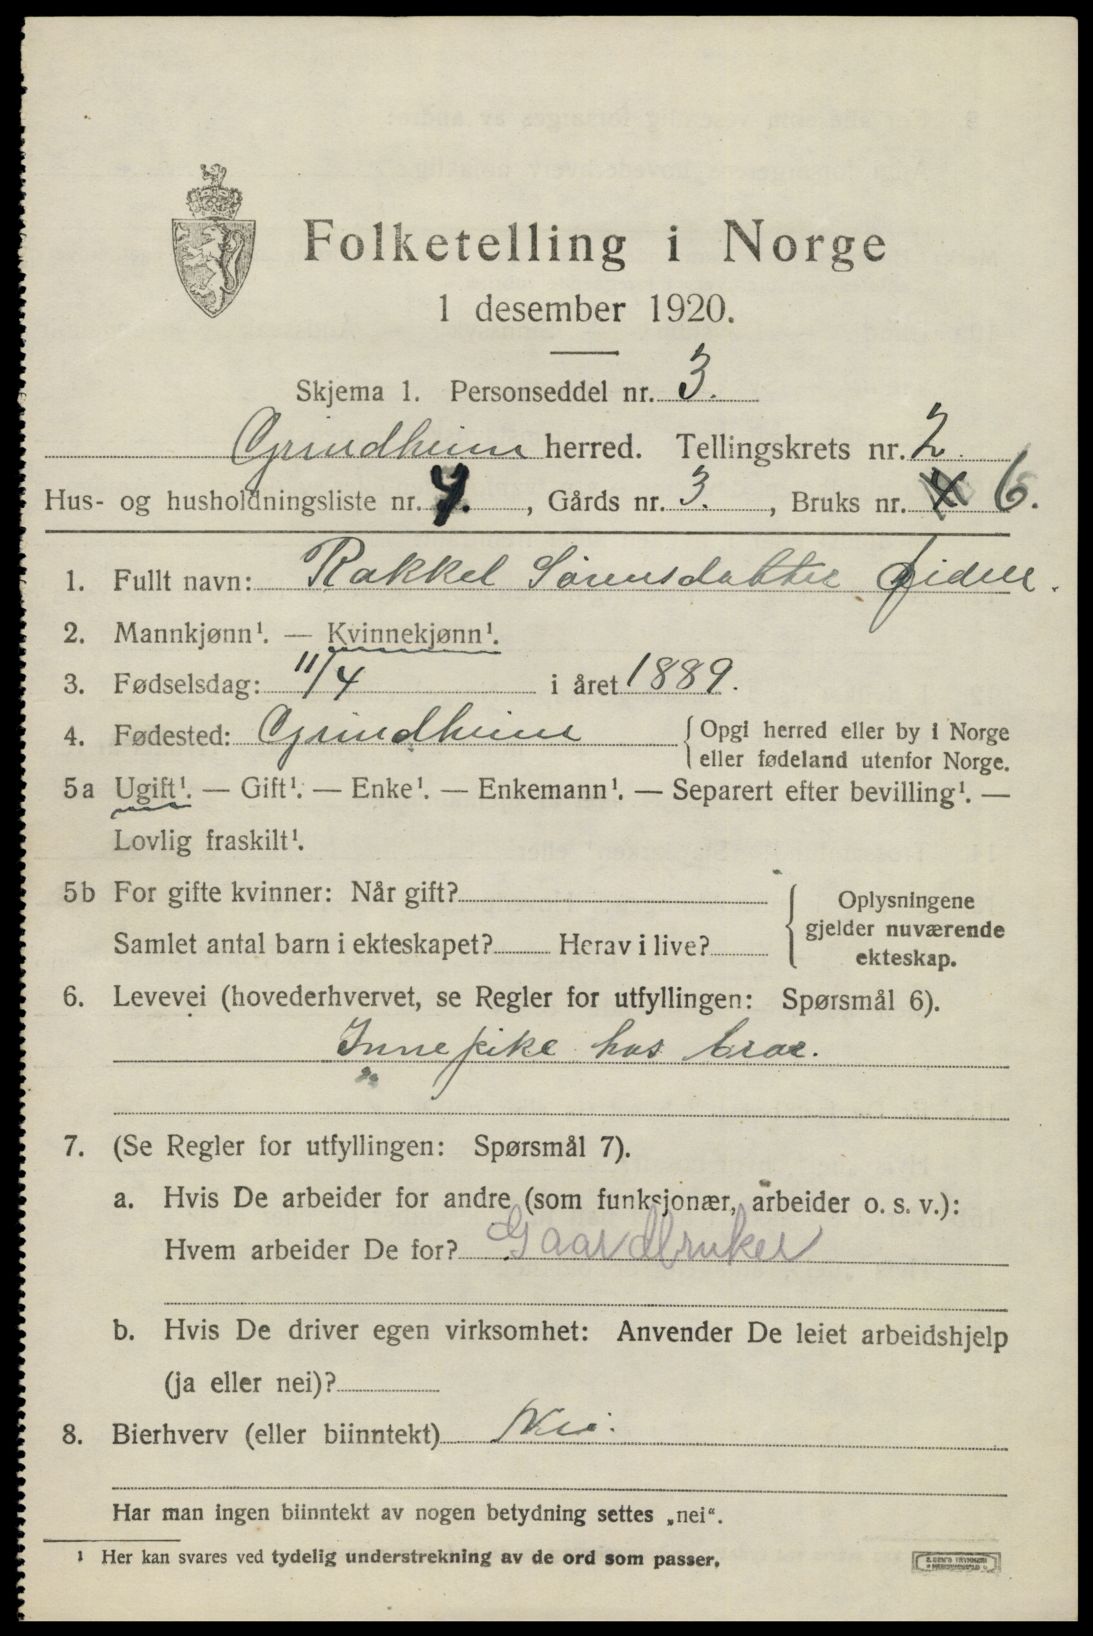 Folketelling i Norge
1 desember 1920.
Skjema 1. Personseddel nr. 3.
Grindheim herred. Tellingskrets nr. 2.
Hus- og husholdningsliste nr. 7., Gårds nr. 3., Bruks nr. 6.
1. Fullt navn: Rakkel Sørensdatter
2. Mannkjønn¹. — Kvinnekjønn¹.
3. Fødselsdag: 11/4 i året 1889.
4. Fødested: Grindheim {Opgi herred eller by i Norge
eller fødeland utenfor Norge.
5a Ugift¹. — Gift¹. — Enke¹. — Enkemann¹. — Separert efter bevilling¹. —
Lovlig fraskilt¹.
5b For gifte kvinner: Når gift?
Samlet antal barn i ekteskapet? Herav i live?
{Oplysningene
gjelder nuværende
ekteskap.
6. Levevei (hovederhvervet, se Regler for utfyllingen: Spørsmål 6).
Innepike hos bror.
7. (Se Regler for utfyllingen: Spørsmål 7).
a. Hvis De arbeider for andre (som funksjonær, arbeider o. s. v.):
Hvem arbeider De for? Gaardbruker
b. Hvis De driver egen virksomhet: Anvender De leiet arbeidshjelp
(ja eller nei)?
8. Bierhverv (eller biinntekt) Nei.
Har man ingen biinntekt av nogen betydning settes „nei“.
¹ Her kan svares ved tydelig understrekning av de ord som passer.